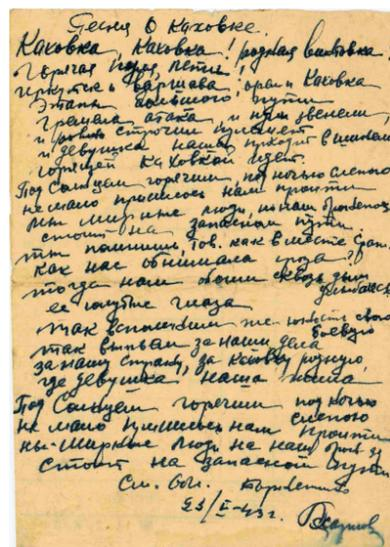 Песня о Каховке.
Каховка, Каховка! родная винтовка
Горячая пуля, лети!
Иркутск и Варшава, Орёл и Каховка
Этапы большого пути
Гремела атака, и пули звенели,
и ровно строчил пулемет
и девушка наша проходит в шинели
горящей Каховкой идет.
Под Солнцем горячим, под ночью слепою
не мало пришлось нам пройти
мы мирные люди, но наш бронепоезд
стоит на запасном пути.
ты помнишь, тов. как вместе
как нас обнимала гроза?
тогда нам обоим сквозь дым
улыбались
ее голубые глаза
так вспомним же юность свою
боевую
так выпьем за наши дела
за нашу страну, за Каховку родную,
где девушка наша жила
Под Солнцем горячим под ночью
не мало пришлось нам слепою
пройти
мы мирные люди но наш
стоит на запасном пути